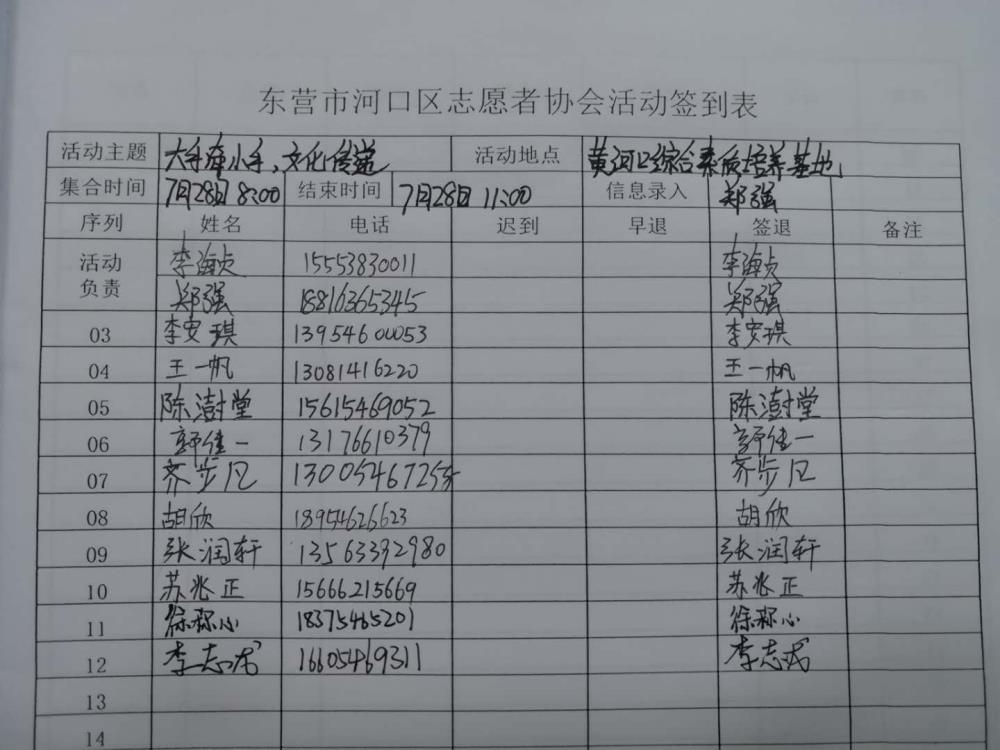 东营市河口区志愿者协会活动签到表
活动主题 大手牵小手、文化传递 活动地点 黄河口综合素质培养基地
集合时间 7月28日 8:00 结束时间 7月28日 11:00 信息录入 郑强
序列 姓名 电话 迟到 早退 签退 备注
活动负责 李海贞 15553830011 李海贞
郑强 18816365345 郑强
03 李安琪 13954600053 李安琪
04 王一帆 13081416220 王一帆
05 陈澍堂 15615469052 陈澍堂
06 佳一 13176610379 佳一
07 齐步凡 齐步凡
08 胡欣 18954626623 胡欣
09 张润轩 13563392980 张润轩
10 苏兆正 15666215669 苏兆正
11 徐称心 18375465201 徐称心
12 李志 16605469311 李志
13
14